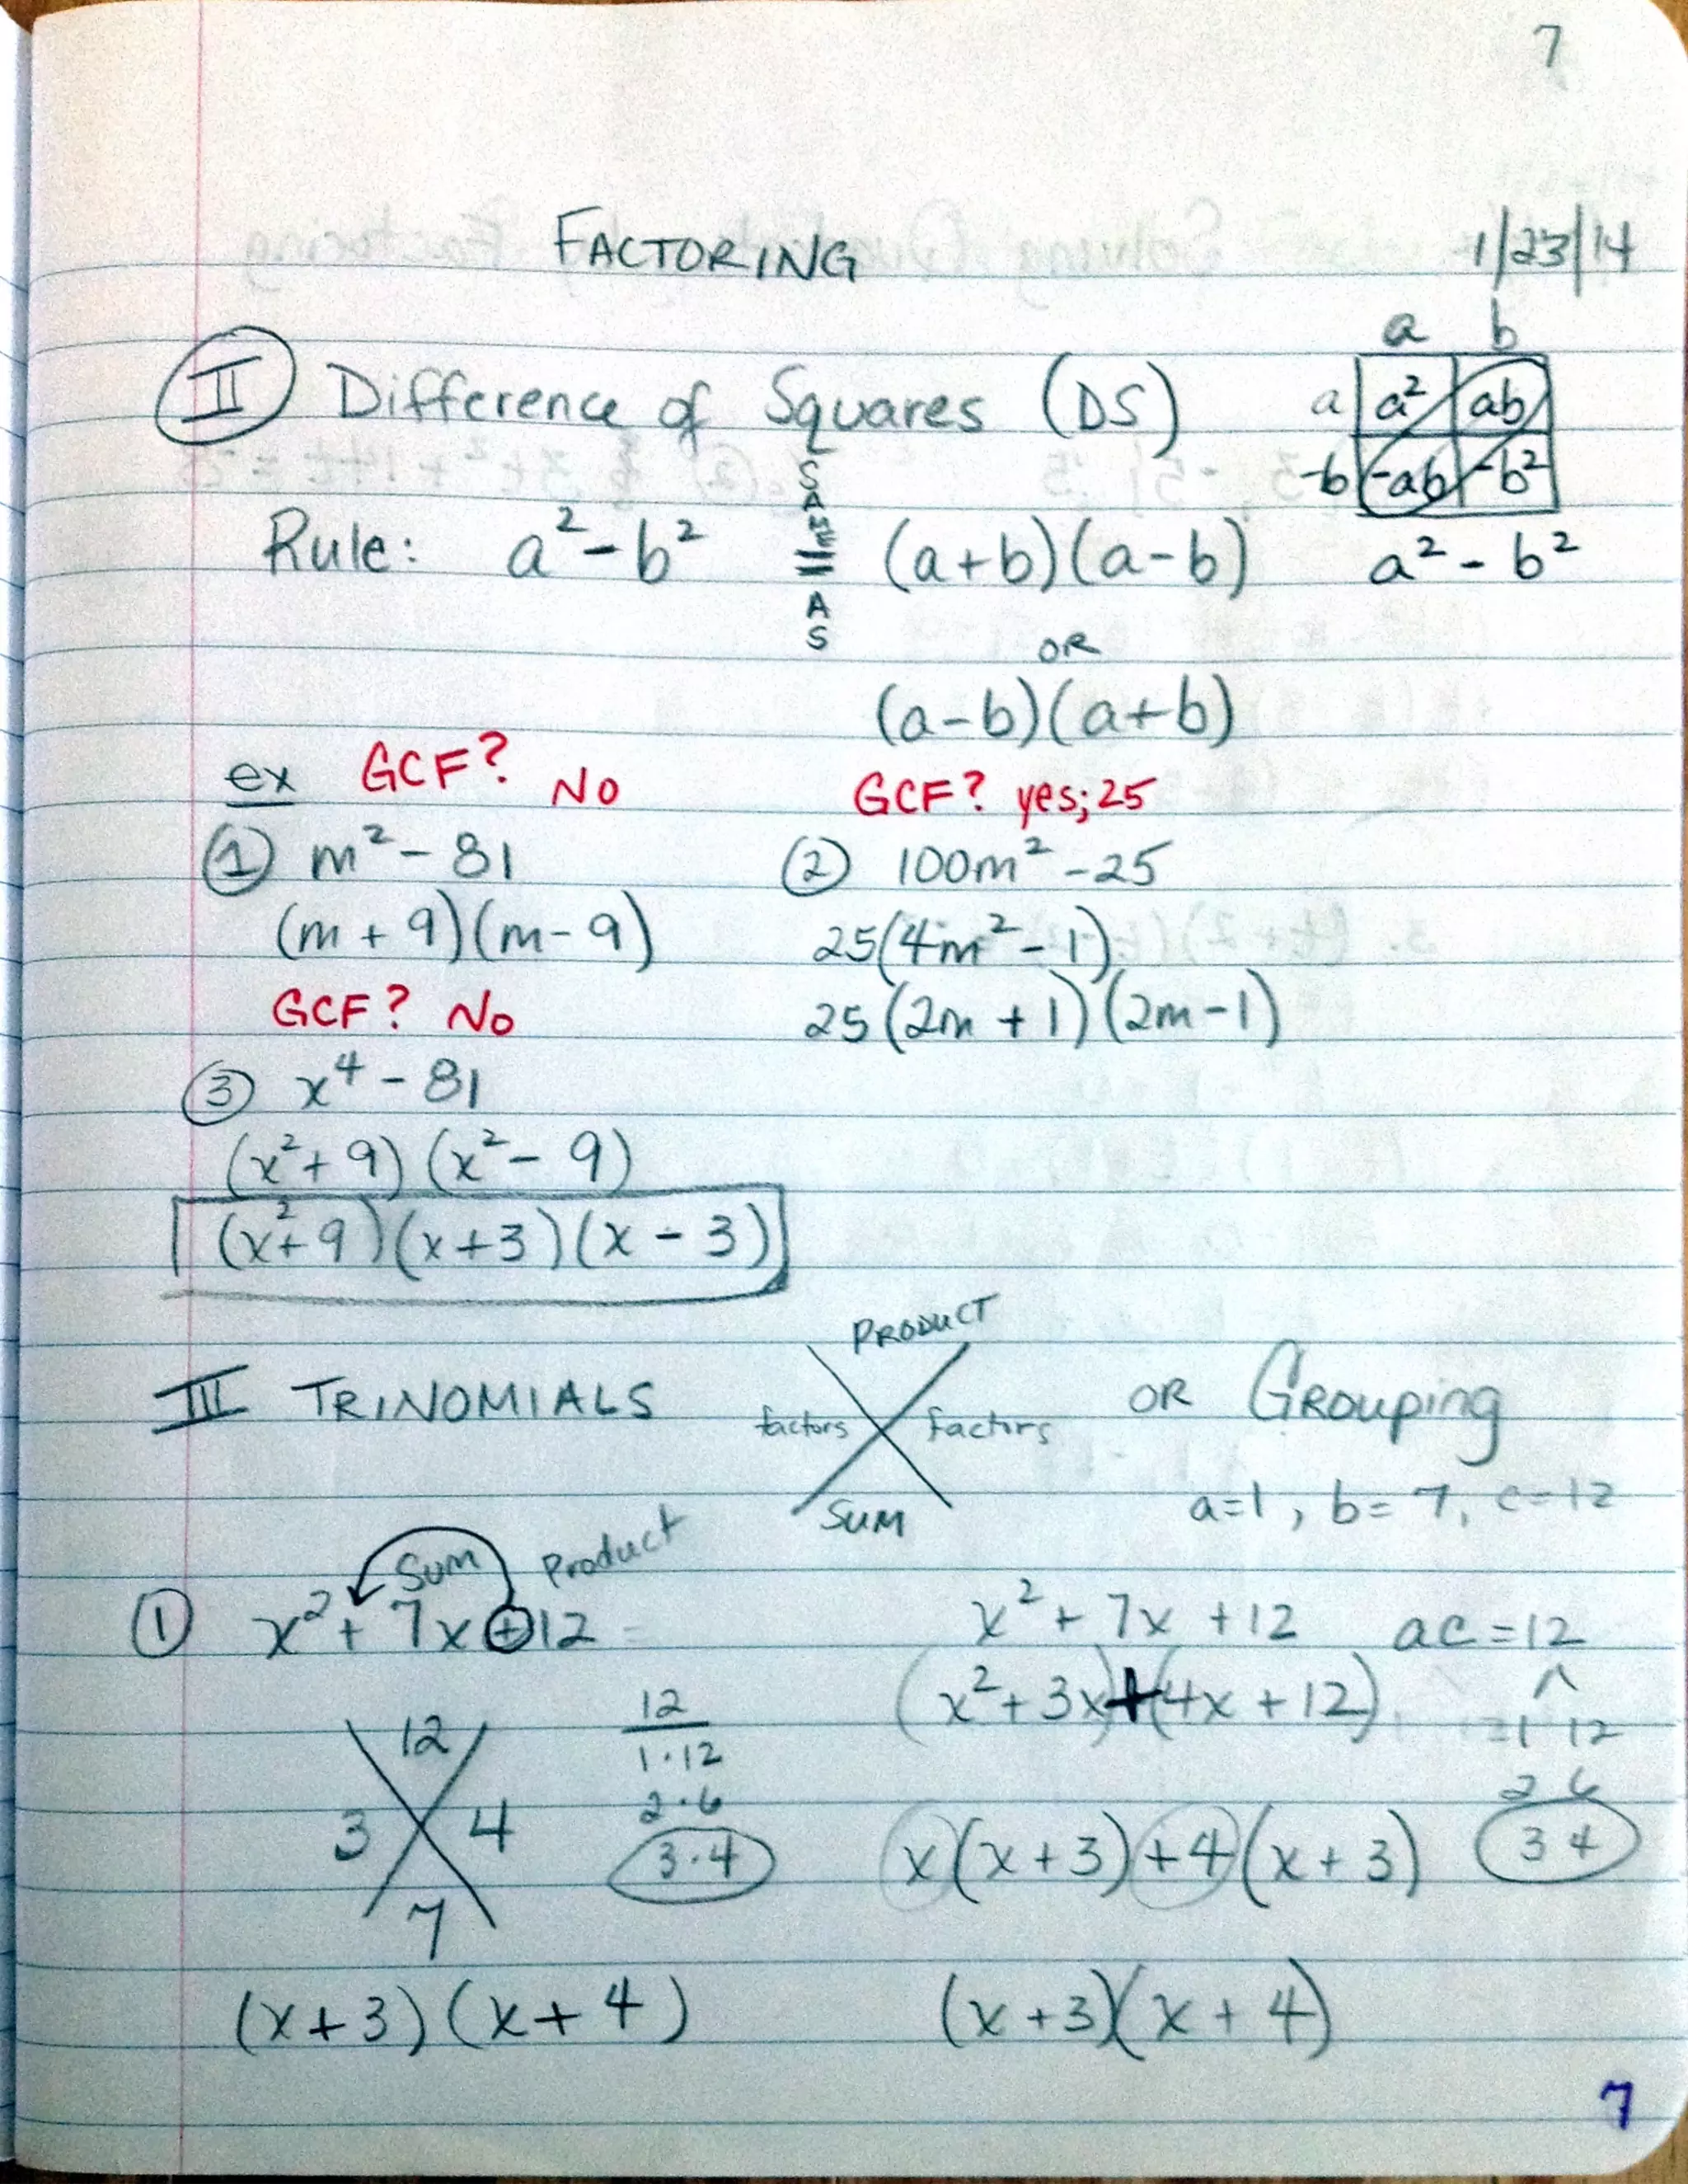 7
FACTORING 1/23/14
II Difference of Squares (DS)
a b
a a² ab
-b -ab -b²
a² - b²
SAME
AS
Rule: a² - b² = (a+b)(a-b)
OR
(a-b)(a+b)
ex GCF? No
① m² - 81
(m + 9)(m - 9)
GCF? yes; 25
② 100m² - 25
25(4m² - 1)
25(2m + 1)(2m - 1)
GCF? No
③ x⁴ - 81
(x² + 9)(x² - 9)
(x² + 9)(x + 3)(x - 3)
III TRINOMIALS
PRODUCT
factors factors
SUM
OR GROUPING
a=1, b=7, c=12
Sum Product
① x² + 7x + 12 =
12
3 4
7
12
1·12
2·6
3·4
(x+3)(x+4)
x² + 7x + 12 ac = 12
(x² + 3x) + (4x + 12)
1 12
2 6
3 4
x(x+3) + 4(x+3)
(x+3)(x+4)
7